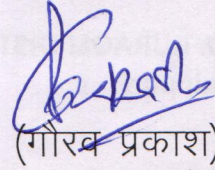 (गौरव प्रकाश)